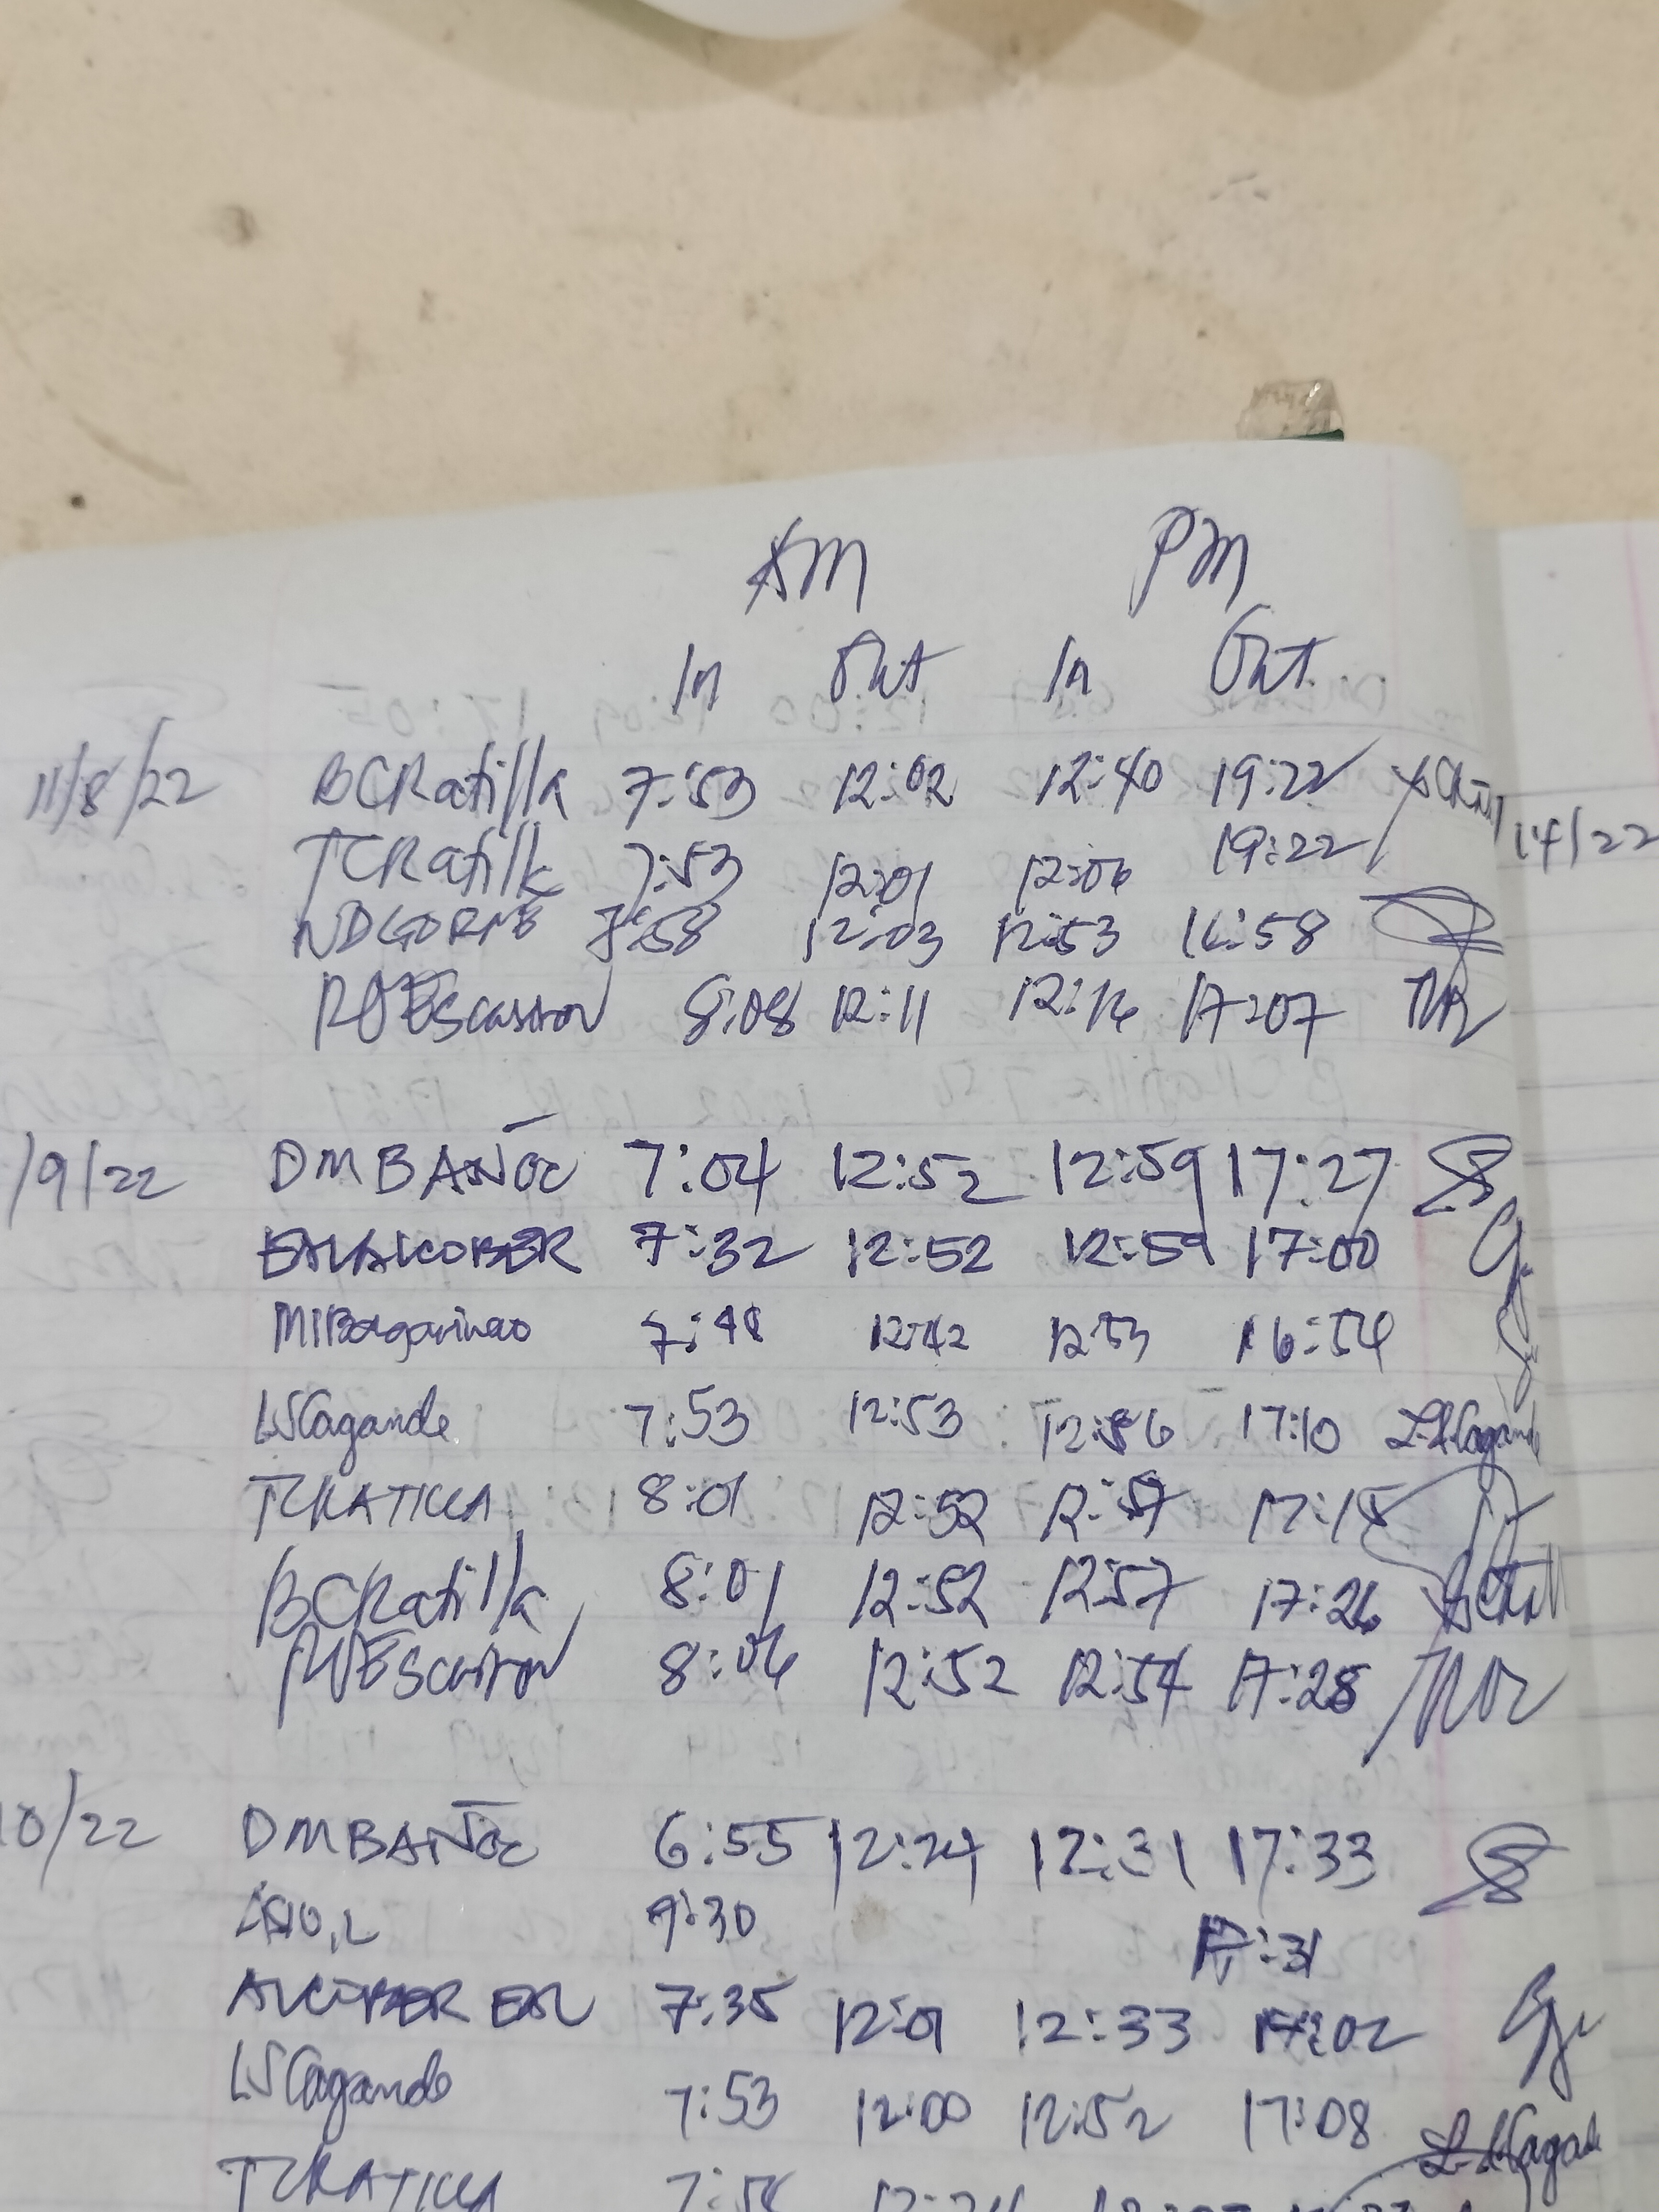 AM PM
In Out In Out
11/8/22 BCRatilla 7:53 12:02 12:40 19:22
TCRatilla 7:53 12:01 12:06 19:22
14/22
7:58 12:03 12:53 16:58
8:08 12:11 12:16 17:07
/9/22 DMBAÑOC 7:04 12:52 12:59 17:27
EMALCOBER 7:32 12:52 12:59 17:00
7:48 12:42 12:53 16:54
LSCagande 7:53 12:53 12:56 17:10 L.S.Cagande
TCRATILLA 8:01 12:52 12:57 17:18
BCRatilla 8:01 12:52 12:57 17:26
8:06 12:52 12:54 17:28
10/22 DMBAÑOC 6:55 12:24 12:31 17:33
9:30 17:31
ALCOBER EM 7:35 12:01 12:33 17:02
LSCagande 7:53 12:00 12:52 17:08
TCRATILLA